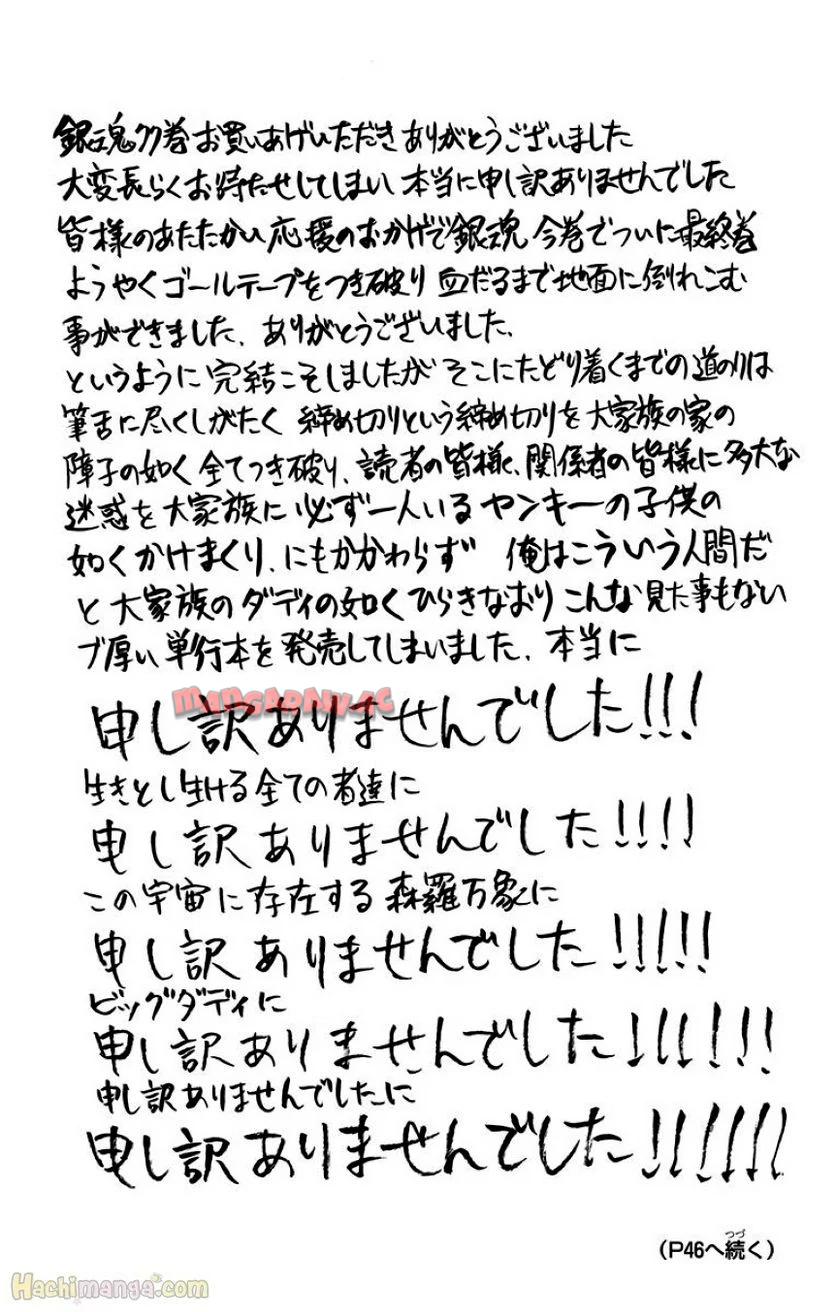 銀魂77巻お買いあげいただきありがとうございました
大変長らくお待たせしてしまい 本当に申し訳ありませんでした
皆様のあたたかい応援のおかげで銀魂 今巻でついに最終巻
ようやくゴールテープをつき破り 血だるまで地面に倒れこむ
事ができました、ありがとうございました、
というように完結こそしましたが そこにたどり着くまでの道のりは
筆舌に尽くしがたく 締め切りという締め切りを大家族の家の
障子の如く全てつき破り、読者の皆様、関係者の皆様に多大な
迷惑を大家族に必ず一人いるヤンキーの子供の
如くかけまくり、にもかかわらず 俺はこういう人間だ
と大家族のダディの如くひらきなおりこんな見た事もない
ブ厚い単行本を発売してしまいました、本当に
申し訳ありませんでした!!!
生きとし生ける全ての者達に
申し訳ありませんでした!!!!
この宇宙に存在する森羅万象に
申し訳ありませんでした!!!!!
ビッグダディに
申し訳ありませんでした!!!!!!
申し訳ありませんでしたに
申し訳ありませんでした!!!!!!!
(P46へ続く)
つづ
Hachimanga.com